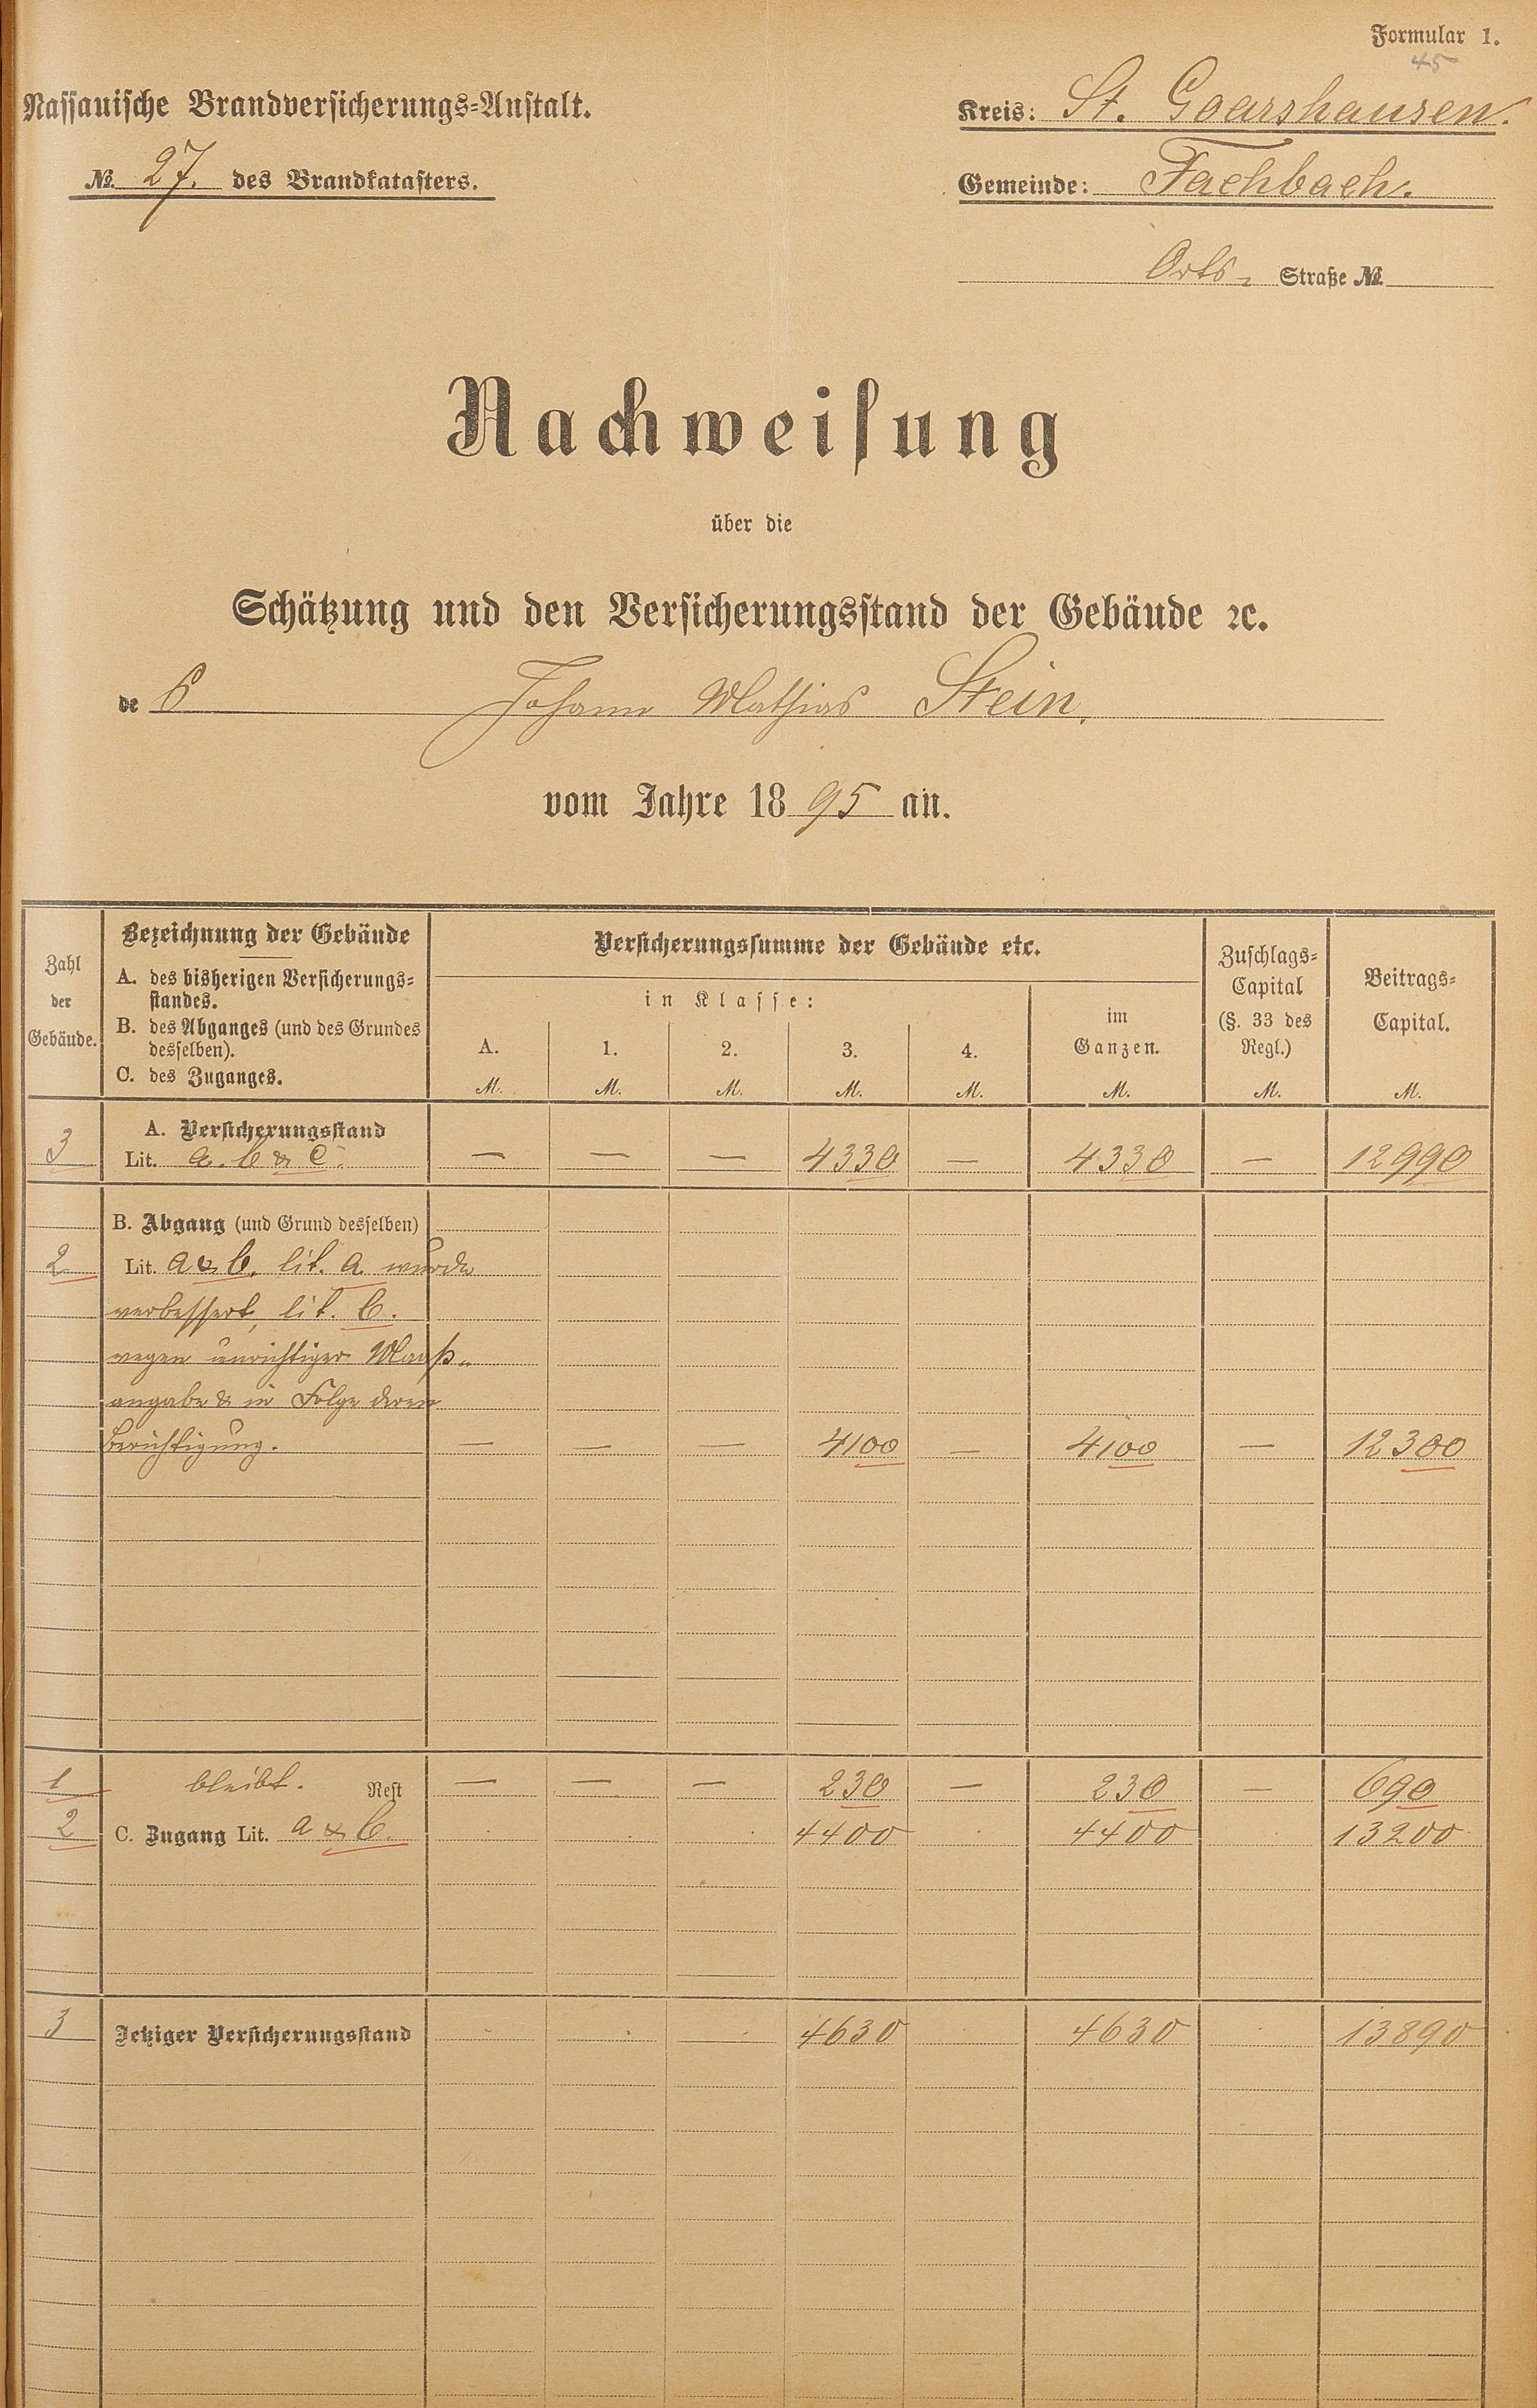 Formular 1.
45
Nassauische Brandversicherungs-Anstalt.
Kreis: St. Goarshausen.
№ 27. des Brandkatasters.
Gemeinde: Fachbach.
Orts- Straße №
Nachweisung
über die
Schätzung und den Versicherungsstand der Gebäude ꝛc.
des Johann Mathias Stein.
vom Jahre 1895 an.
Zahl der Gebäude.
Bezeichnung der Gebäude
A. des bisherigen Versicherungs-
standes.
B. des Abganges (und des Grundes
desselben).
C. des Zuganges.
Versicherungssumme der Gebäude etc.
in Klasse:
A. 1. 2. 3. 4.
M. M. M. M. M.
im
Ganzen.
M.
Zuschlags-
Capital
(§. 33 des
Regl.)
M.
Beitrags-
Capital.
M.
A. Versicherungsstand
3 Lit. a. b & c. — — — 4330 — 4330 — 12990
B. Abgang (und Grund desselben)
2 Lit. a & b. lit. a wurde
verbessert, lit. b.
wegen unrichtiger Maaß-
angabe & in Folge deren
Berichtigung. — — — 4100 — 4100 — 12300
1 bleibt. Rest — — — 230 — 230 — 690
2 C. Zugang Lit. a & b. 4400 4400 13200
3 Jetziger Versicherungsstand 4630 4630 13890